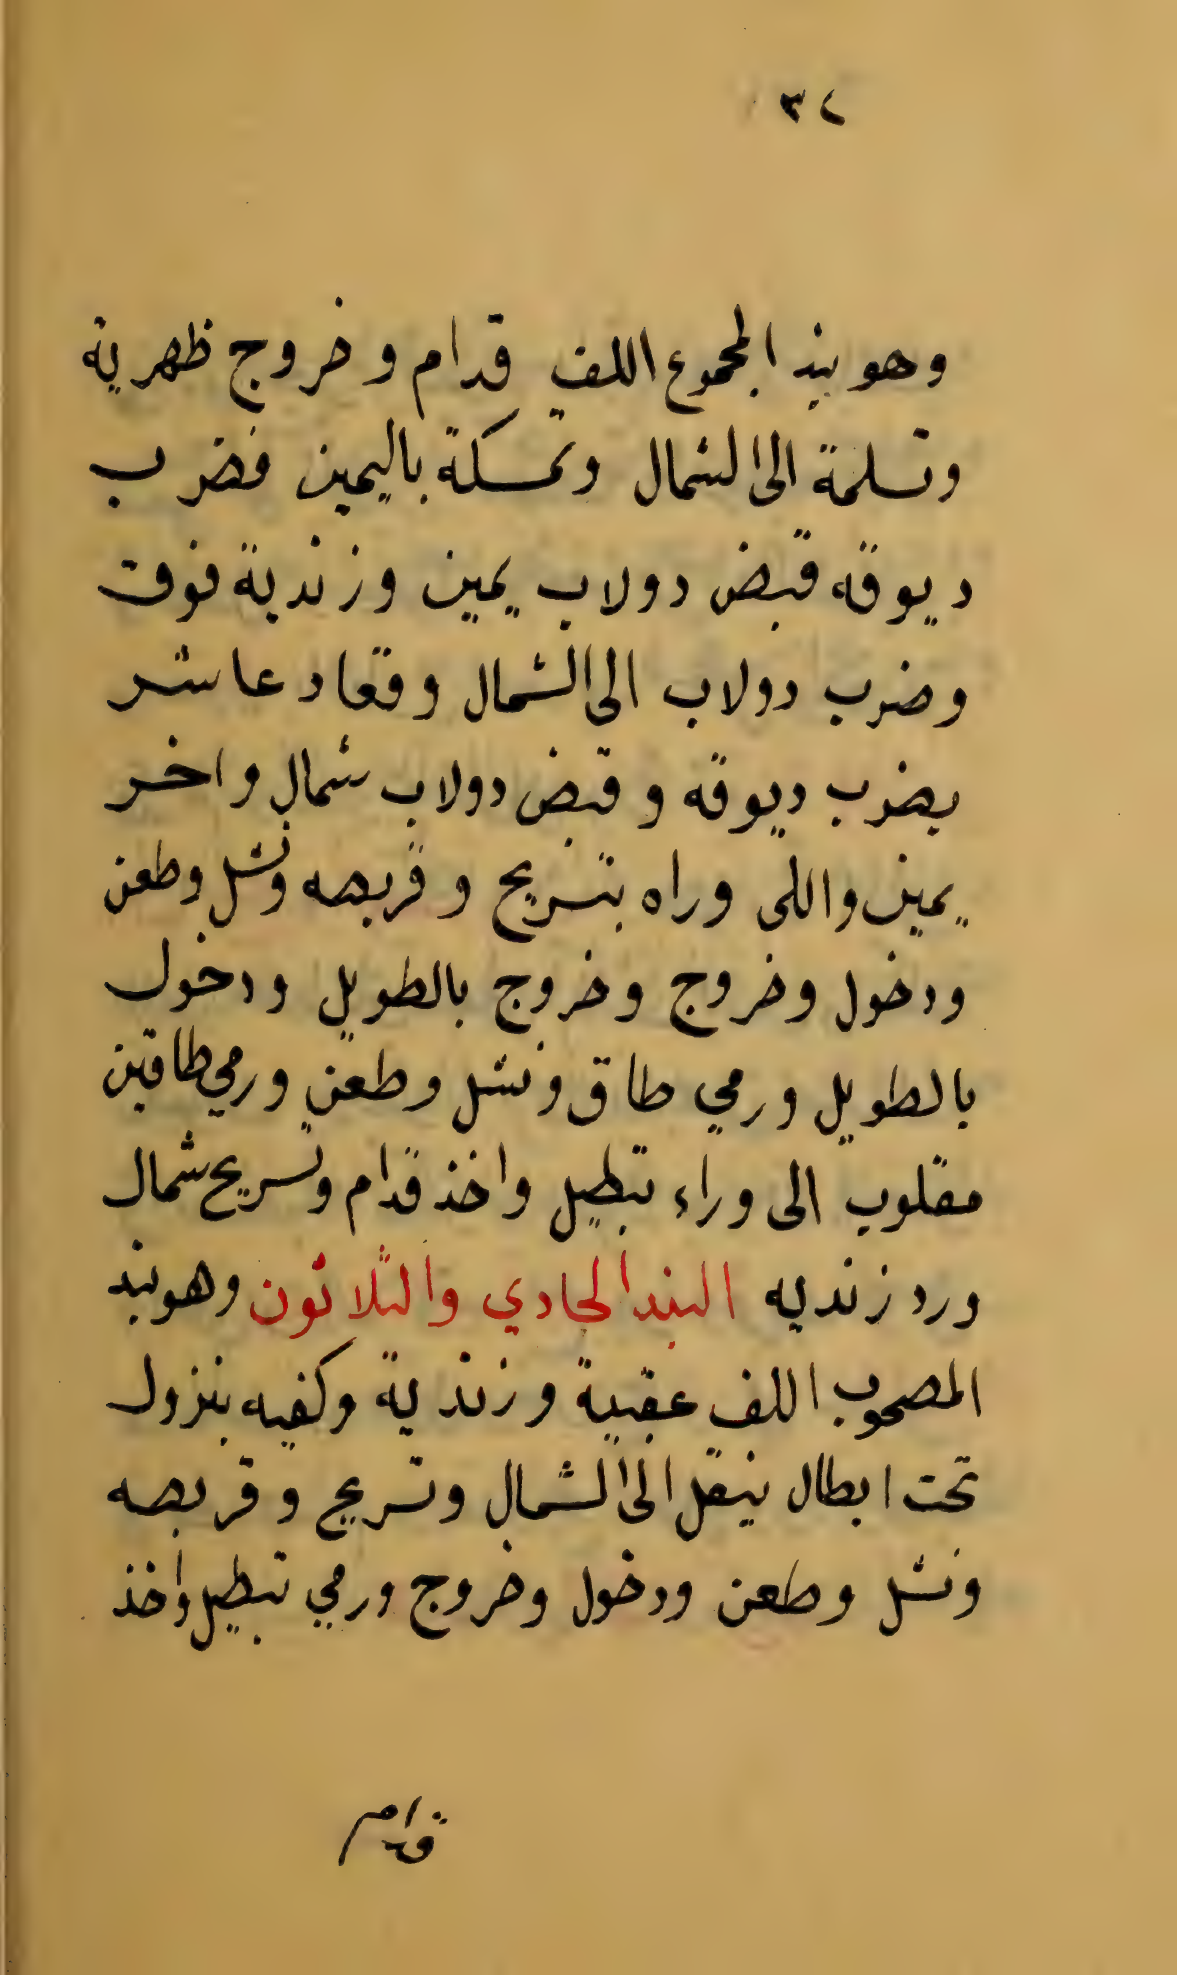 ٣٤
وهو بند المجموع اللف قدام وخروج ظهرية
وتسلمة الى الشمال وتمسكة باليمين فضرب
ديوقه قبض دولاب يمين وزندية فوق
وضرب دولاب الى الشمال وقعاد عاشر
بضرب ديوقه وقبض دولاب شمال واخر
يمين واللى وراه بتسريح وقربصه ونشل وطعن
ودخول وخروج وخروج بالطويل ودخول
بالطويل ورمي طاق ونشل وطعن ورمي طاقين
مقلوب الى وراء تبطيل واخذ قدام وتسريح شمال
ورد زنديه البند الحادي والثلاثون وهو بند
المصحوب اللف عقبية وزندية وكفيه بنزول
تحت ابطال ينقل الى الشمال وتسريح وقربصه
ونشل وطعن ودخول وخروج ورمي تبطيل واخذ
قدام